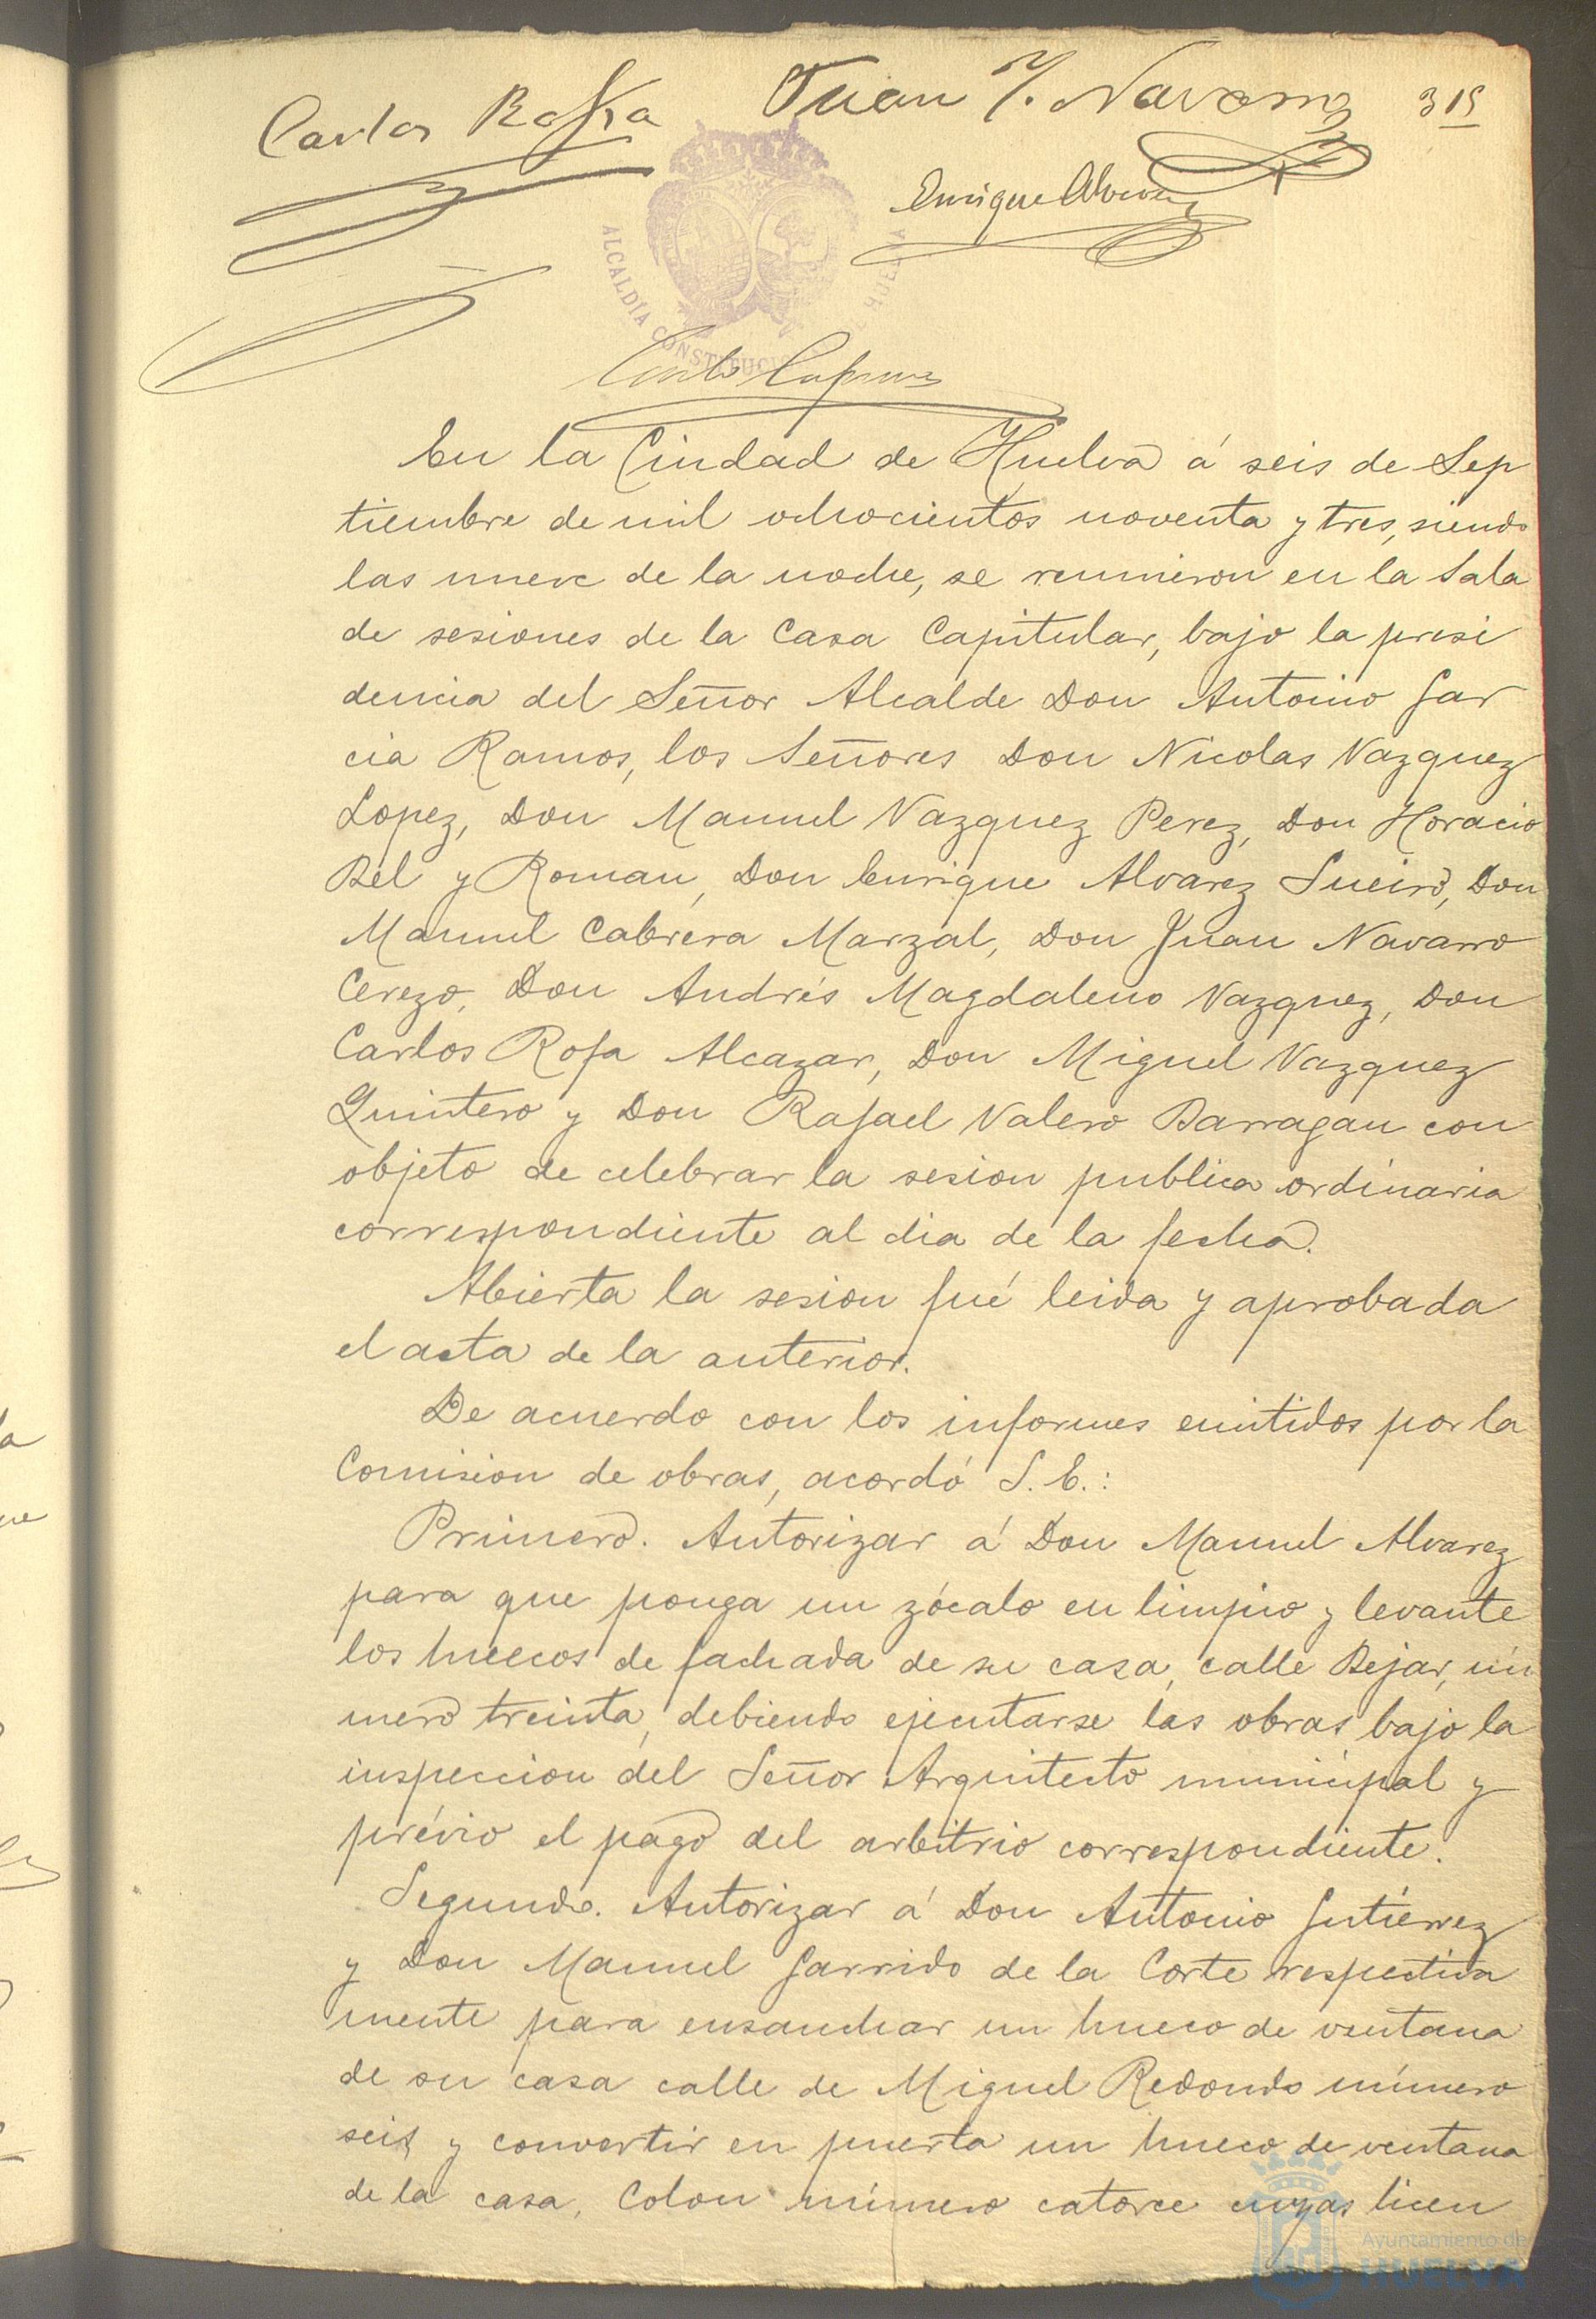 Carlos Rofa
Juan J. Navarro
315
Enrique Alvarez
ALCALDÍA CONSTITUCIONAL DE HUELVA
En la Ciudad de Huelva á seis de Sep
tiembre de mil ochocientos noventa y tres, siendo
las nueve de la noche, se reunieron en la Sala
de sesiones de la Casa Capitular, bajo la presi
dencia del Señor Alcalde Don Antonio Gar
cia Ramos, los Señores Don Nicolas Vazquez
Lopez, Don Manuel Vazquez Perez, Don Horacio
Bel y Roman, Don Enrique Alvarez Sueiro, Don
Manuel Cabrera Marzal, Don Juan Navarro
Cerezo, Don Andrés Magdaleno Vazquez, Don
Carlos Rofa Alcazar, Don Miguel Vazquez
Quintero y Don Rafael Valero Barragan con
objeto de celebrar la sesion publica ordinaria
correspondiente al dia de la fecha.
Abierta la sesion fué leida y aprobada
el acta de la anterior.
De acuerdo con los informes emitidos por la
Comision de obras, acordó S. E.:
Primero. Autorizar á Don Manuel Alvarez
para que ponga un zócalo en limpio y levante
los huecos de fachada de su casa, calle Bejar, nú
mero treinta, debiendo ejecutarse las obras bajo la
inspeccion del Señor Arquitecto municipal y
prévio el pago del arbitrio correspondiente.
Segundo. Autorizar á Don Antonio Gutiérrez
y Don Manuel Garrido de la Corte respectiva
mente para ensanchar un hueco de ventana
de su casa calle de Miguel Redondo número
seis y convertir en puerta un hueco de ventana
de la casa, Colon número catorce cuyas licen
Ayuntamiento de
HUELVA